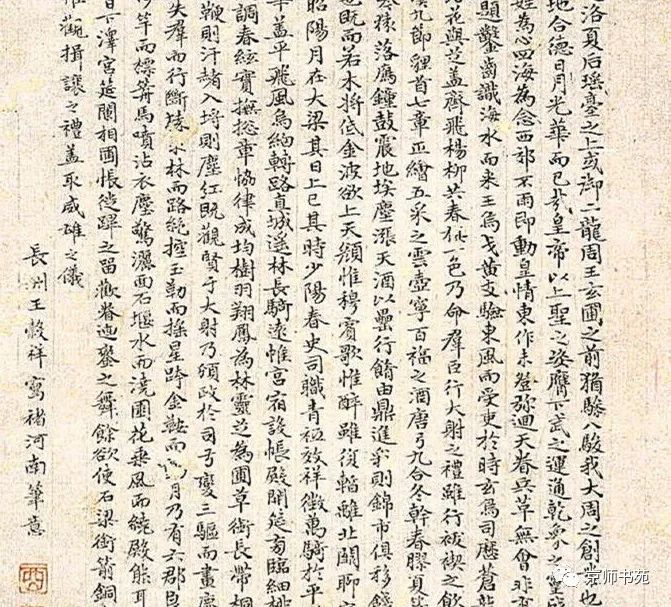 洛夏后瑶臺之上或御二龍周王玄圃之前猶驂八駿我大周之創業也
地合德日月光華而已哉皇帝以上聖之姿膺下武之運通乾象之靈
姓為心四海為念西郊不雨即動皇情東作未登弥迴天眷兵革無會非
題鑿齒識海水而來王烏弋黄支驗東風而受吏於時玄鳥司歷蒼龍
花與芝盖齊飛楊柳共春旂一色乃命群臣行大射之禮雖行祓禊之飲
九節貍首七章正繪五采之雲壺寧百福之酒唐弓九合冬幹春膠夏
寒猿落鴈鐘鼓震地埃塵漲天酒以罍行餚由鼎進采則錦市俱移錢
也既而若木將低金波欲上天顔惟穆賓歌惟醉雖復輼離北闕聊宴
昭陽月在大梁其日上巳其時少陽春史司職青祇效祥徵萬騎於平
華盖平飛風烏細轉路直城遥林長騎遠帷宮宿設帳殿開筵旁臨細柳
調春絃實撫揔章恊律成均樹羽翔鳳為林靈芝為圃草街長帶桐
鞭則汗赭入埒則塵紅既觀賢于大射乃頒政於司弓變三驅而畫鹿
失群而行斷猿求林而路絶控玉勒而摇星跨金鞍而動月乃有六郡良
竿而標筭馬噴沾衣塵驚灑面石堰水而澆園花乘風而繞殿熊耳
日下澤宮筵闌相圃悵徙蹕之留歡眷迴鑾之舞餘欲使石梁銜箭銅
惟觀揖讓之禮盖取威雄之儀
長洲王榖祥寫褚河南筆意
京师书苑